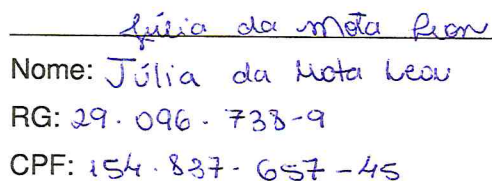 Júlia da Mota Leon
Nome: Júlia da Mota Leon
RG: 29.096.738-9
CPF: 154.837.657-45